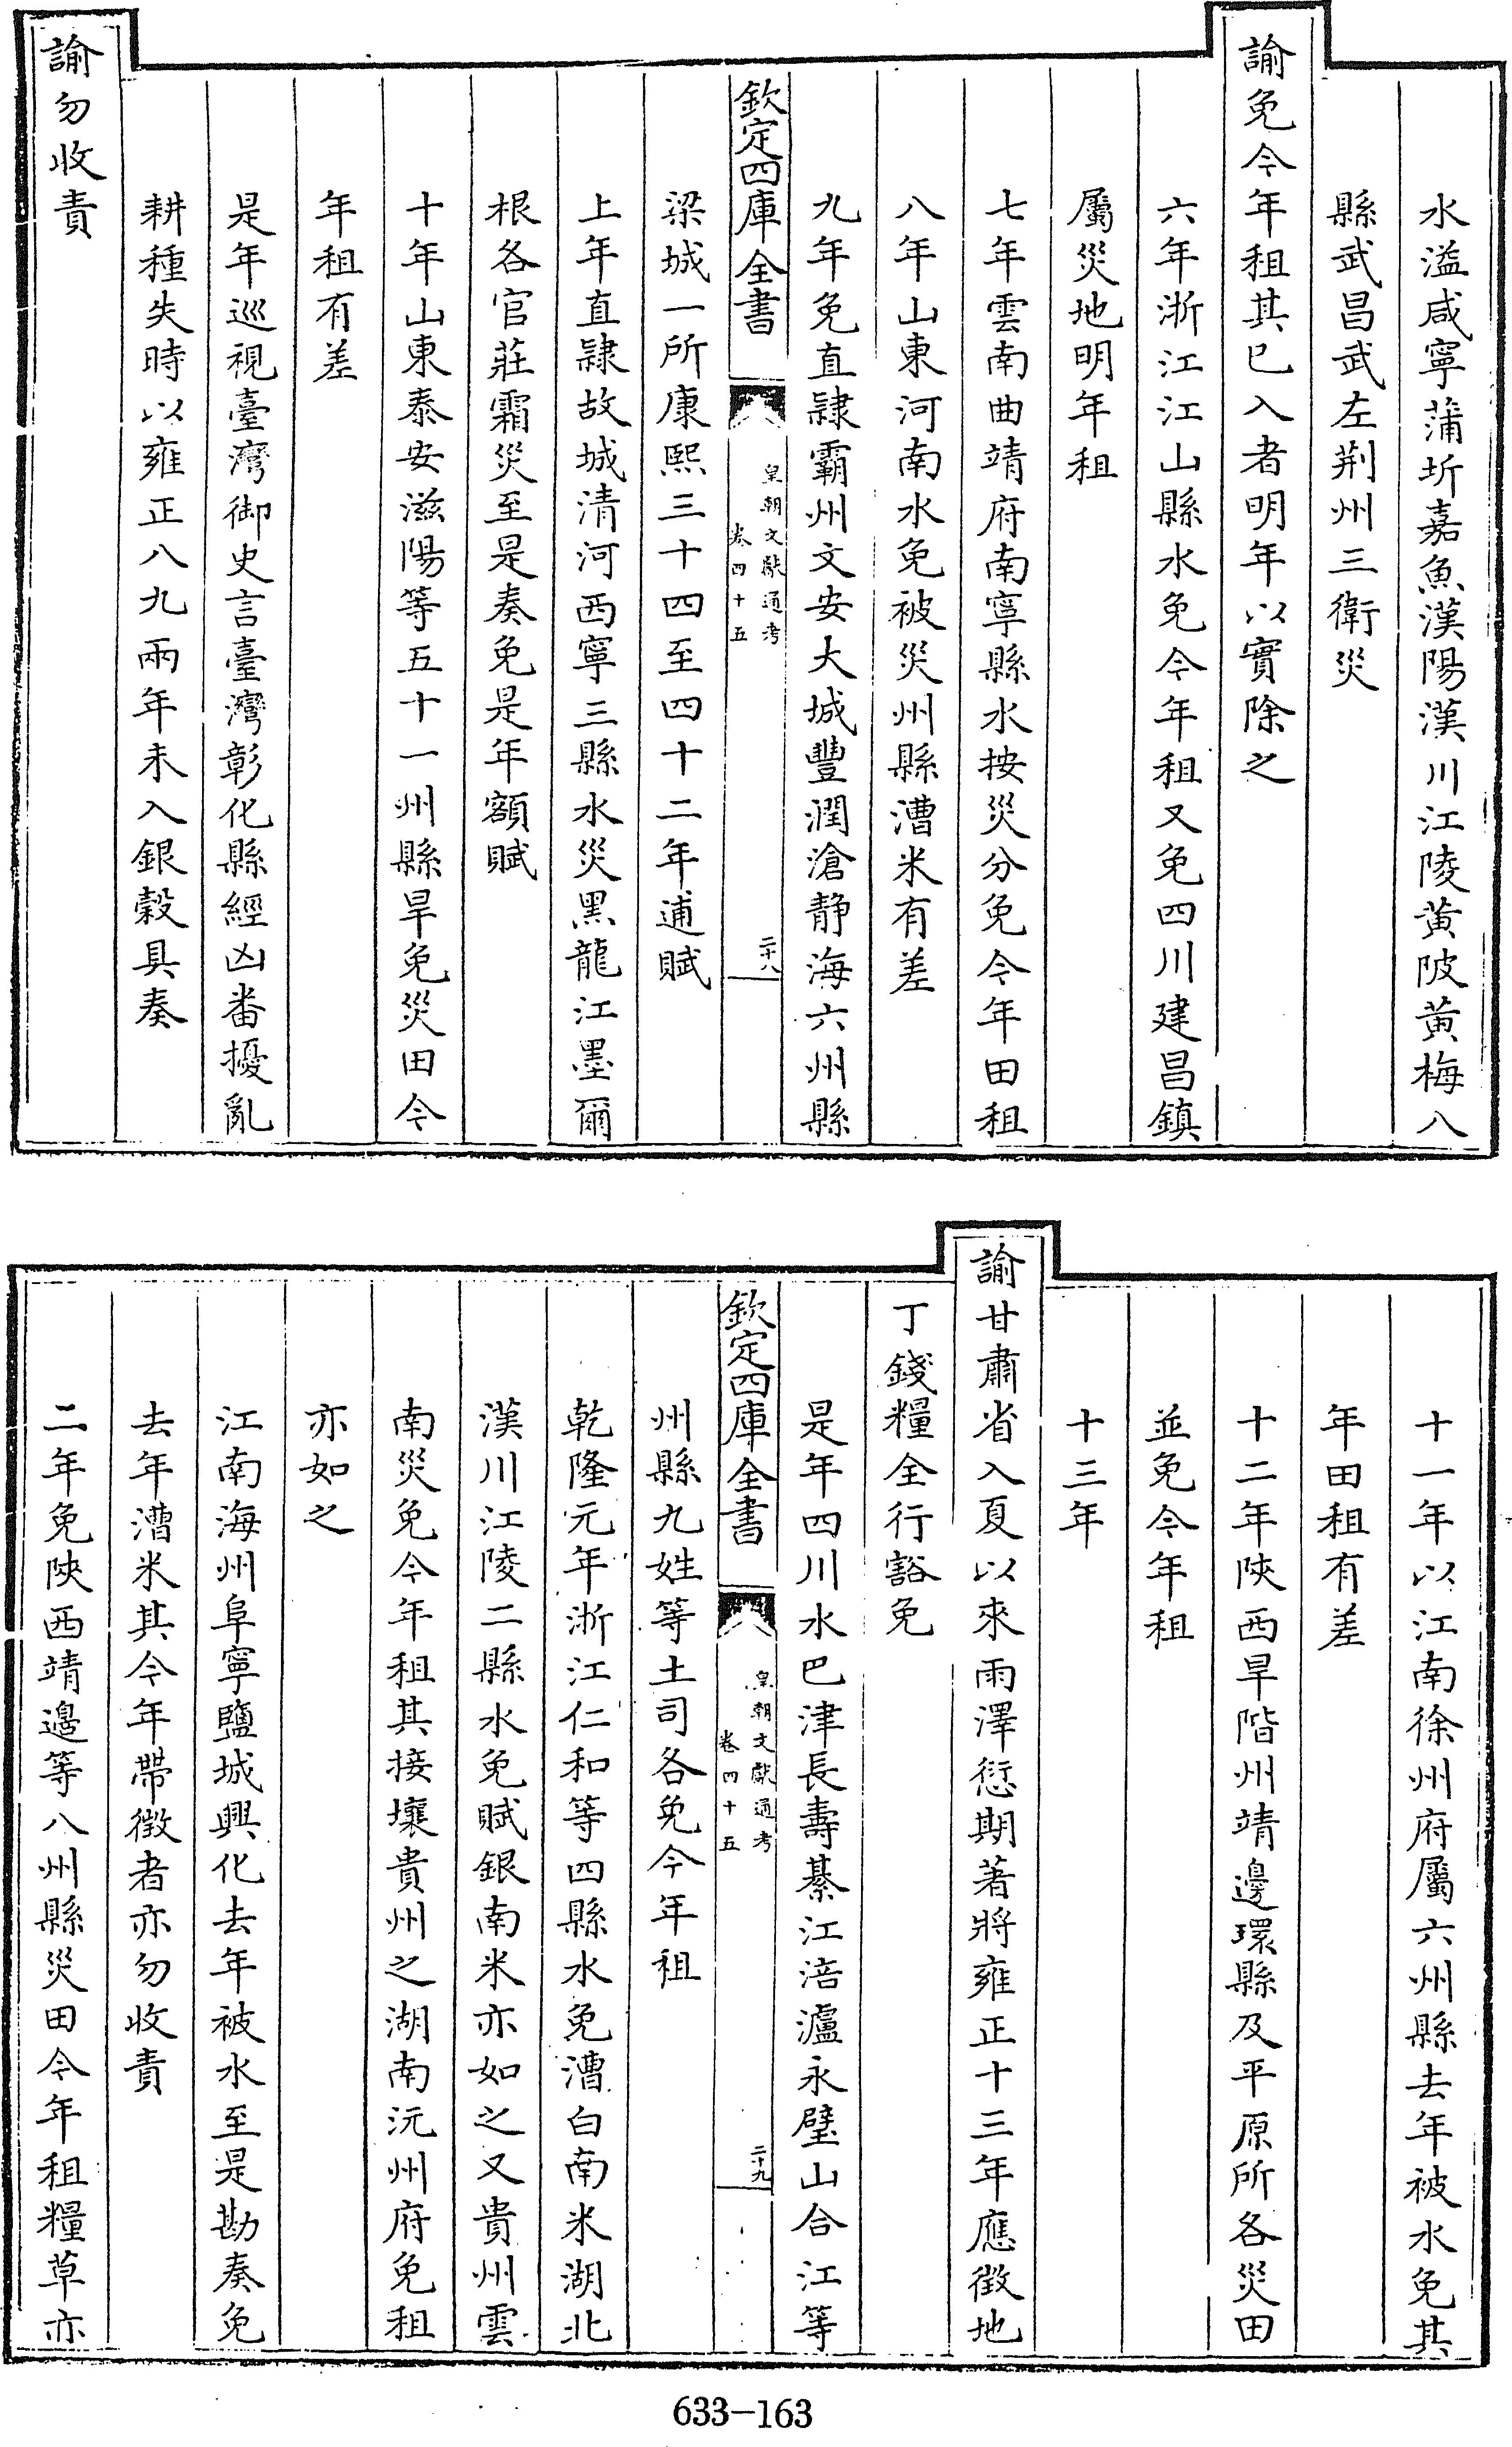 水溢咸寧蒲圻嘉魚漢陽漢川江陵黃陂黃梅八
縣武昌武左荆州三衛災
諭免今年租其已入者明年以實除之
六年浙江江山縣水免今年租又免四川建昌鎮
屬災地明年租
七年雲南曲靖府南寧縣水按災分免今年田租
八年山東河南水免被災州縣漕米有差
九年免直隸霸州文安大城豐潤滄靜海六州縣
欽定四庫全書
皇朝文獻通考
卷四十五
二十八
梁城一所康熙三十四至四十二年逋賦
上年直隸故城清河西寧三縣水災黑龍江墨爾
根各官莊霜災至是奏免是年額賦
十年山東泰安滋陽等五十一州縣旱免災田今
年租有差
是年巡視臺灣御史言臺灣彰化縣經凶番擾亂
耕種失時以雍正八九兩年未入銀穀具奏
諭勿收責
十一年以江南徐州府屬六州縣去年被水免其
年田租有差
十二年陝西旱階州靖邊環縣及平原所各災田
並免今年租
十三年
諭甘肅省入夏以來雨澤愆期著將雍正十三年應徵地
丁錢糧全行豁免
是年四川水巴津長壽綦江涪瀘永璧山合江等
欽定四庫全書
皇朝文獻通考
卷四十五
二十九
州縣九姓等土司各免今年租
乾隆元年浙江仁和等四縣水免漕白南米湖北
漢川江陵二縣水免賦銀南米亦如之又貴州雲
南災免今年租其接壤貴州之湖南沅州府免租
亦如之
江南海州阜寧鹽城興化去年被水至是勘奏免
去年漕米其今年帶徵者亦勿收責
二年免陝西靖邊等八州縣災田今年租糧草亦
633-163